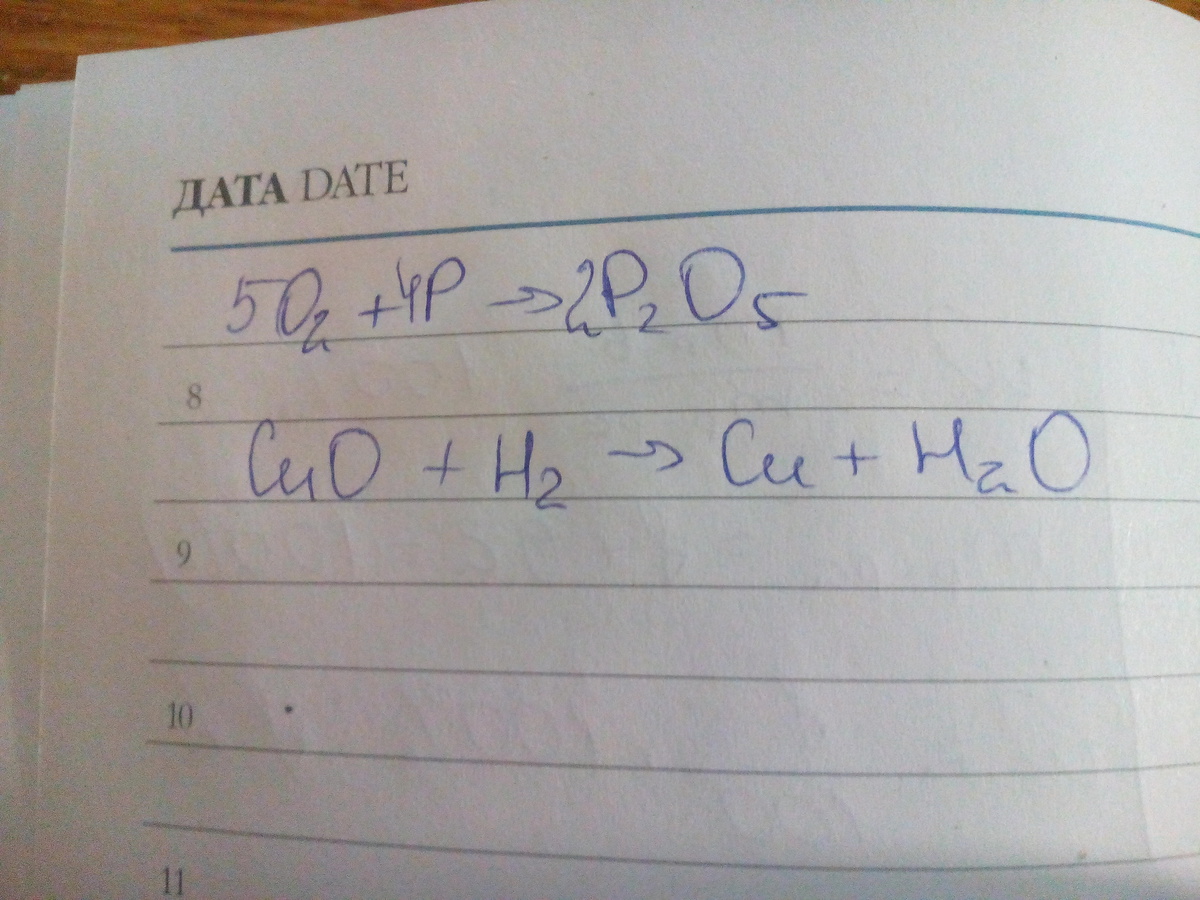 ДАТА DATE
5O₂ + 4P → 2P₂O₅
8
CuO + H₂ → Cu + H₂O
9
10
11